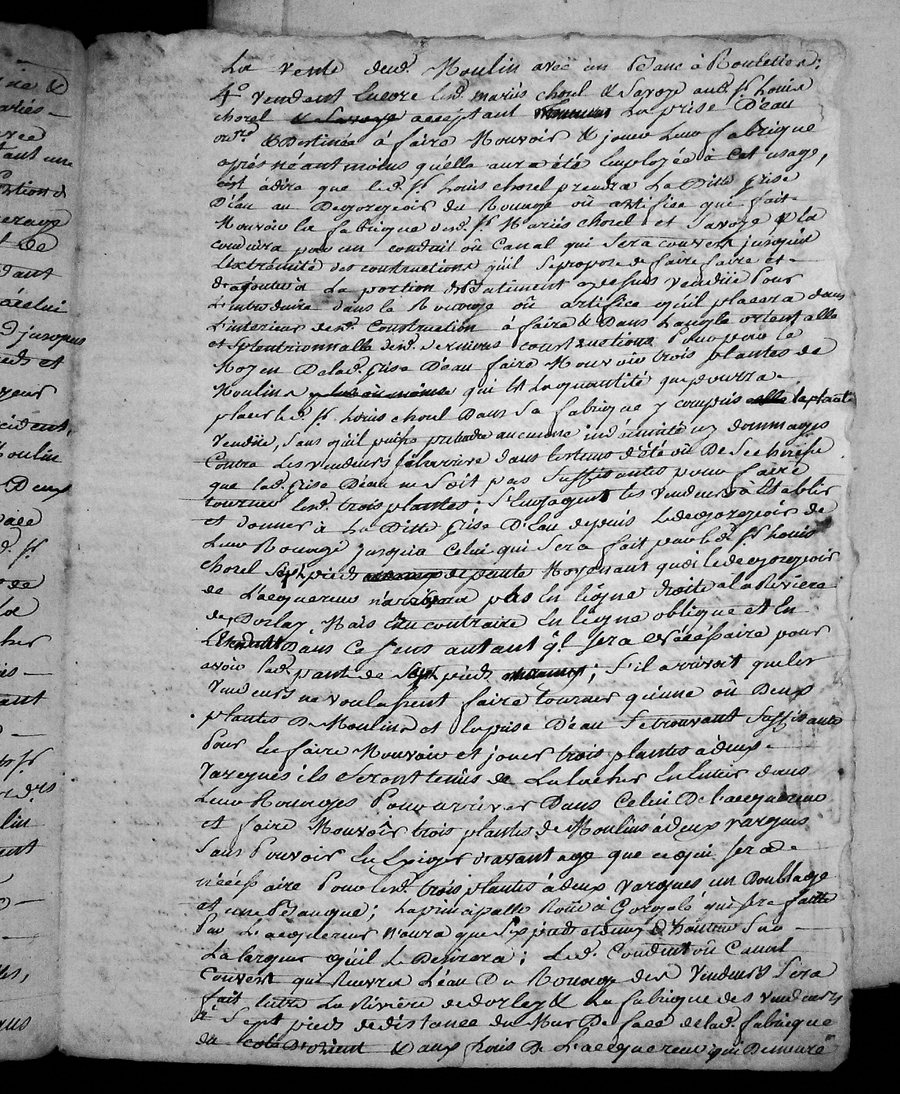 La vente dud. Moulin avec un Banc à Roulettes;
4.º Vendent Encore lesd. mariés chorel & Savoye aud. Sr. Louis
chorel & Savoye acceptant La prise D'Eau
& Destinée à faire Mouvoir & jouer leur fabrique
après néantmoins qu'elle aura été Employée à Cet usage,
c'est à dire que led. Sr. Louis chorel prendra La Ditte Prise
D'Eau au Degorgeoir du Rouage où artifice qui fait
Mouvoir la fabrique desd. Sr. Mariés chorel et Savoye & la
conduira par un conduit où Canal qui Sera couvert jusqu'à
L'extrémité des constructions qu'il Se propose de faire faire et
d'ajouter à La portion de Batiment cy dessus vendüe Pour
L'introduire dans le Rouage où artifice qu'il placera dans
L'interieur desd. Construction à faire & Dans L'angle orientalle
et Septentrionnalle desd. dernieres constructions pour par le
Moyen De lad. Prise D'Eau faire Mouvoir trois plantes de
Moulins qui Est la quantité que pourra
placer led. Sr. Louis chorel Dans Sa fabrique y compris la plante
Vendüe, Sans qu'il puisse pretendre aucunne indemnité ny dommages
Contre Les vendeurs Si il arrive dans les tems d'Eté où De Secheresse
que lad. Prise D'Eau ne Soit pas Suffisantes pour faire
tourner lesd. trois plantes; S'Engagent les vendeurs à Etablir
et donner à La Ditte Prise D'Eau depuis Le degorgeoir de
Leur Rouage jusqu'à Celui qui Sera fait par led. Sr. Louis
chorel Sept pieds de pente Moyenant quoi le degorgeoir
de L'acquereur n'arrivera pas En ligne droite à la Riviere
de Dorlay Mais Au contraire En ligne oblique et En
dans ce Sens autant q'l Sera necéssaire pour
avoir lad. pante de Sept pieds; S'il arrivoit que les
Vendeurs ne voulussent faire tourner qu'une où Deux
plantes De Moulins et la prise D'Eau Se trouvant Suffisante
Pour Les faire Mouvoir et jouer trois plantes à deux
Vargues ils Seront tenus de La lacher En entier dans
Leur Rouages Pour arriver Dans Celui De L'acquereur
et faire Mouvoir trois plantes de Moulins à deux vargues
Sans Pouvoir En Exiger davantage que ce qui Sera
nécéssaire Pour lesd. trois plantes à deux vargues un Doublage
et une Banque; La principalle Roüe à Gorgole qui Sera faitte
Par L'acquereur N'aura que Six pieds et demy & Hauteur Sur
La largeur qu'il Le Desirera; Led. Conduit où Canal
Couvert qui Recevra L'eau D Rouage des Vendeurs Sera
fait Entre La Riviere de Dorlay & La fabrique des Vendeurs
Sept pieds de distance du Mur De face de lad. fabrique
du coté D'orient & aux frais De L'acquereur qui Demeure